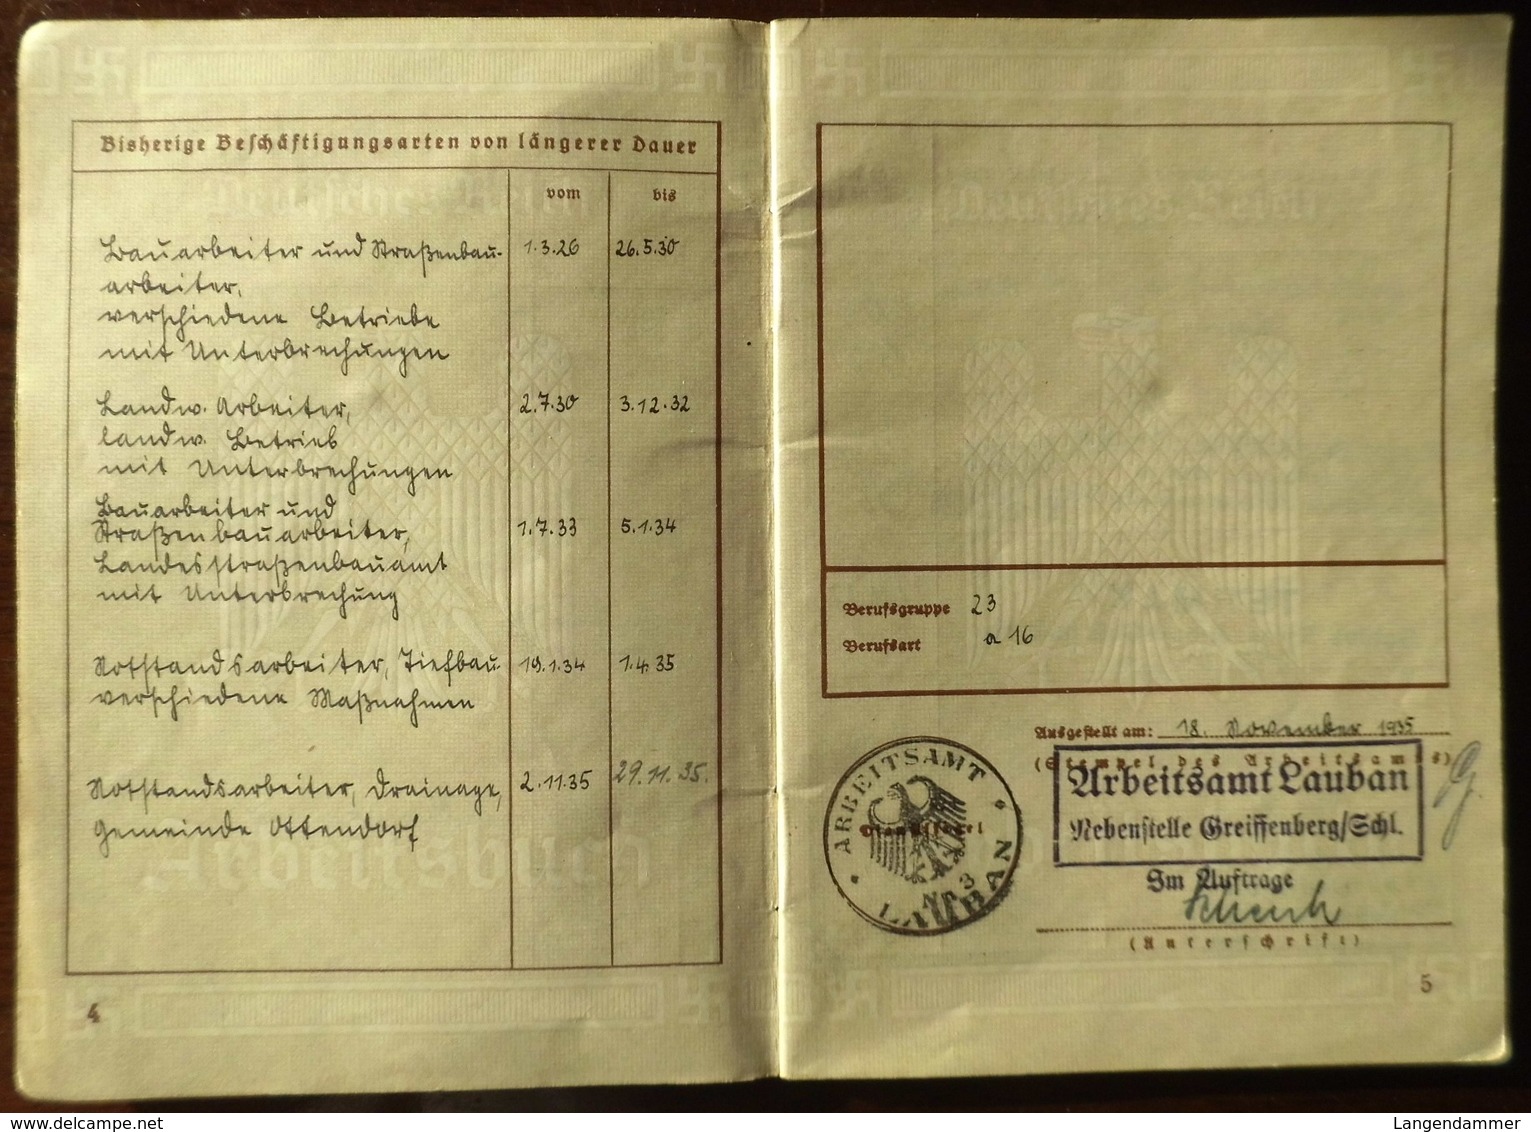 Bisherige Beschäftigungsarten von längerer Dauer
vom bis
Bauarbeiter und Straßenbau- 1.3.26 26.5.30
arbeiter,
verschiedene Betriebe
mit Unterbrechungen
Landw. Arbeiter, 2.7.30 3.12.32
landw. Betrieb
mit Unterbrechungen
Bauarbeiter und
Straßenbauarbeiter, 1.7.33 5.1.34
Landesstraßenbauamt
mit Unterbrechung
Notstandsarbeiter, Tiefbau- 19.1.34 1.4.35
verschiedene Maßnahmen
Notstandsarbeiter, Drainage, 2.11.35 29.11.35.
Gemeinde Ottendorf
4
Berufsgruppe 23
Berufsart a 16
Ausgestellt am: 18. November 1935
(Stempel des Arbeitsamts)
Arbeitsamt Lauban
Nebenstelle Greiffenberg/Schl.
Im Auftrage
(Unterschrift)
ARBEITSAMT
Dienstsiegel
Nr. 3
LAUBAN
5
www.delcampe.net
Langendammer